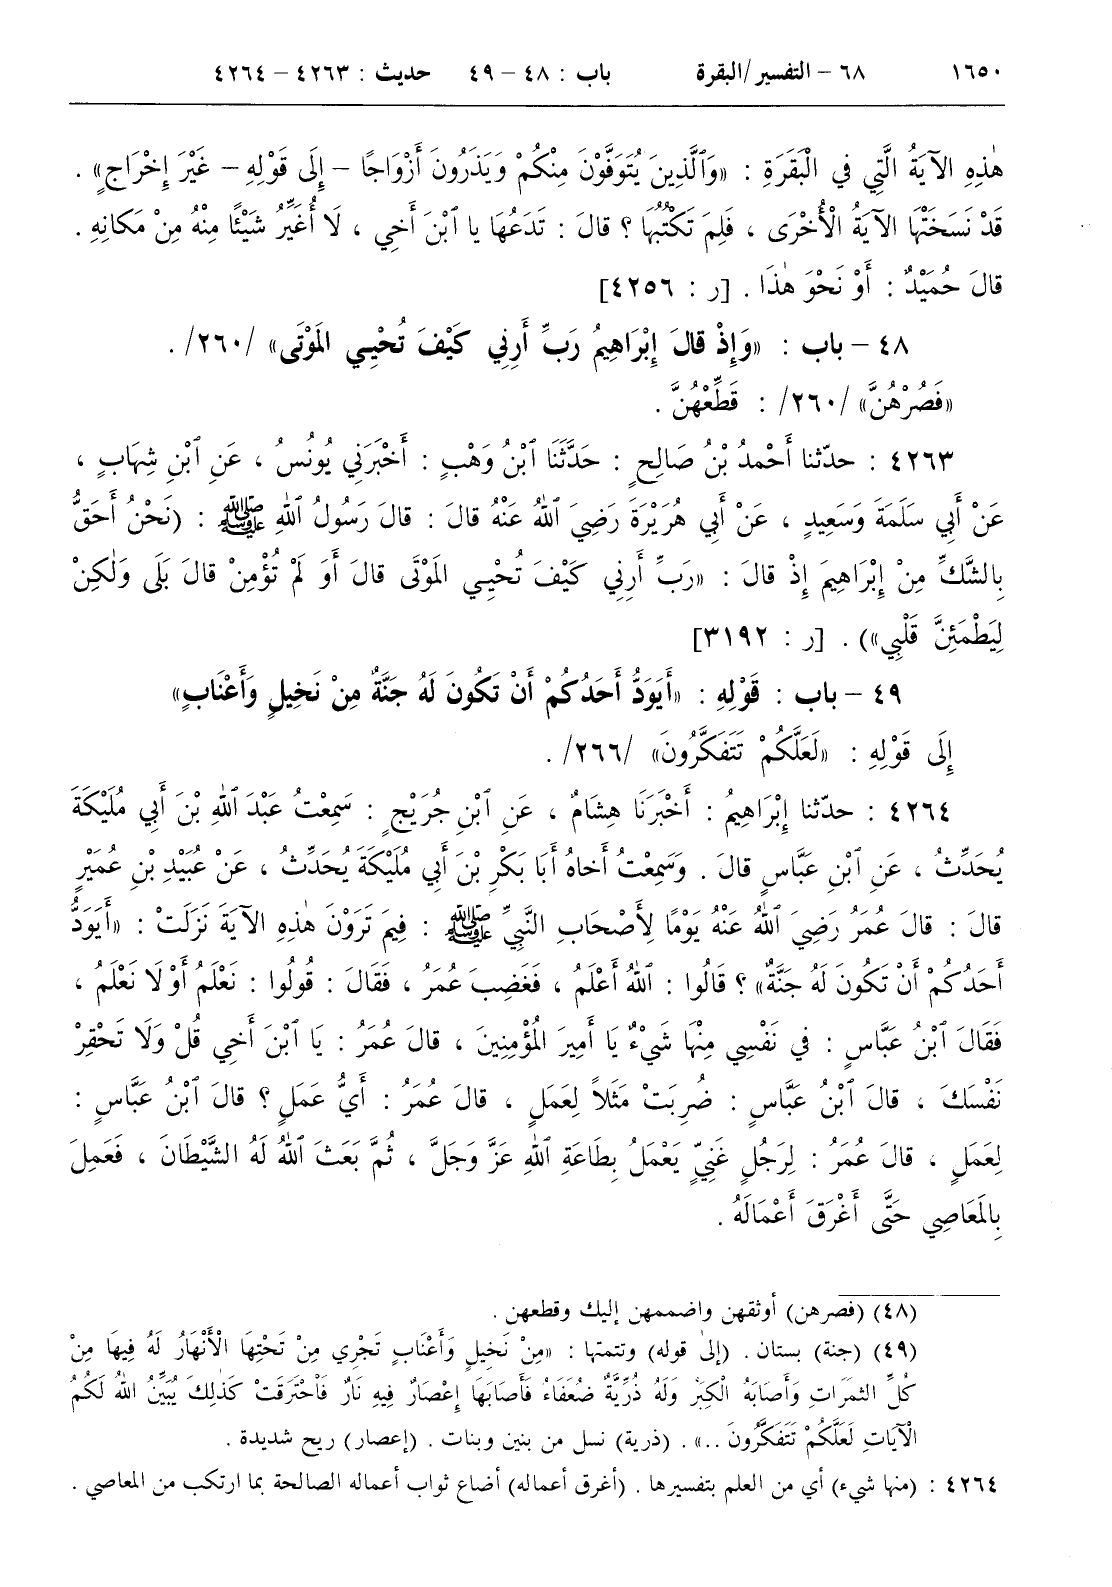 ١٦٥٠ ٦٨ – التفسير/البقرة باب : ٤٨ – ٤٩ حديث : ٤٢٦٣ – ٤٢٦٤
هٰذِهِ الآيَةُ الَّتِي فِي الْبَقَرَةِ : «وَٱلَّذِينَ يُتَوَفَّوْنَ مِنْكُمْ وَيَذَرُونَ أَزْوَاجًا – إِلَى قَوْلِهِ – غَيْرَ إِخْرَاجٍ» .
قَدْ نَسَخَتْهَا الآيَةُ الْأُخْرَى ، فَلِمَ تَكْتُبُهَا ؟ قالَ : تَدَعُهَا يا ٱبْنَ أَخِي ، لَا أُغَيِّرُ شَيْئًا مِنْهُ مِنْ مَكانِهِ .
قالَ حُمَيْدٌ : أَوْ نَحْوَ هٰذَا . [ر : ٤٢٥٦]
٤٨ – باب : «وَإِذْ قالَ إِبْرَاهِيمُ رَبِّ أَرِنِي كَيْفَ تُحْيِي المَوْتَى» /٢٦٠/ .
«فَصُرْهُنَّ» /٢٦٠/ : قَطِّعْهُنَّ .
٤٢٦٣ : حدّثنا أَحْمَدُ بْنُ صَالِحٍ : حَدَّثَنَا ٱبْنُ وَهْبٍ : أَخْبَرَنِي يُونُسُ ، عَنِ ٱبْنِ شِهَابٍ ،
عَنْ أَبِي سَلَمَةَ وَسَعِيدٍ ، عَنْ أَبِي هُرَيْرَةَ رَضِيَ ٱللهُ عَنْهُ قالَ : قالَ رَسُولُ ٱللهِ ﷺ : (نَحْنُ أَحَقُّ
بِالشَّكِّ مِنْ إِبْرَاهِيمَ إِذْ قالَ : «رَبِّ أَرِنِي كَيْفَ تُحْيِي المَوْتَى قالَ أَوَ لَمْ تُؤْمِنْ قالَ بَلَى وَلٰكِنْ
لِيَطْمَئِنَّ قَلْبِي») . [ر : ٣١٩٢]
٤٩ – باب : قَوْلِهِ : «أَيَوَدُّ أَحَدُكُمْ أَنْ تَكُونَ لَهُ جَنَّةٌ مِنْ نَخِيلٍ وَأَعْنَابٍ»
إِلَى قَوْلِهِ : «لَعَلَّكُمْ تَتَفَكَّرُونَ» /٢٦٦/ .
٤٢٦٤ : حدّثنا إِبْرَاهِيمُ : أَخْبَرَنَا هِشَامٌ ، عَنِ ٱبْنِ جُرَيْجٍ : سَمِعْتُ عَبْدَ ٱللهِ بْنَ أَبِي مُلَيْكَةَ
يُحَدِّثُ ، عَنِ ٱبْنِ عَبَّاسٍ قالَ . وَسَمِعْتُ أَخاهُ أَبَا بَكْرِ بْنَ أَبِي مُلَيْكَةَ يُحَدِّثُ ، عَنْ عُبَيْدِ بْنِ عُمَيْرٍ
قالَ : قالَ عُمَرُ رَضِيَ ٱللهُ عَنْهُ يَوْمًا لِأَصْحَابِ النَّبِيِّ ﷺ : فِيمَ تَرَوْنَ هٰذِهِ الآيَةَ نَزَلَتْ : «أَيَوَدُّ
أَحَدُكُمْ أَنْ تَكُونَ لَهُ جَنَّةٌ» ؟ قالُوا : ٱللهُ أَعْلَمُ ، فَغَضِبَ عُمَرُ ، فَقَالَ : قُولُوا : نَعْلَمُ أَوْ لَا نَعْلَمُ ،
فَقَالَ ٱبْنُ عَبَّاسٍ : فِي نَفْسِي مِنْهَا شَيْءٌ يَا أَمِيرَ المُؤْمِنِينَ ، قالَ عُمَرُ : يَا ٱبْنَ أَخِي قُلْ وَلَا تَحْقِرْ
نَفْسَكَ ، قالَ ٱبْنُ عَبَّاسٍ : ضُرِبَتْ مَثَلاً لِعَمَلٍ ، قالَ عُمَرُ : أَيُّ عَمَلٍ ؟ قالَ ٱبْنُ عَبَّاسٍ :
لِعَمَلٍ ، قالَ عُمَرُ : لِرَجُلٍ غَنِيٍّ يَعْمَلُ بِطَاعَةِ ٱللهِ عَزَّ وَجَلَّ ، ثُمَّ بَعَثَ ٱللهُ لَهُ الشَّيْطَانَ ، فَعَمِلَ
بِالمَعَاصِي حَتَّى أَغْرَقَ أَعْمَالَهُ .
(٤٨) (فصرهن) أوثقهن واضممهن إليك وقطعهن .
(٤٩) (جنة) بستان . (إلىٰ قوله) وتتمتها : «مِنْ نَخِيلٍ وَأَعْنَابٍ تَجْرِي مِنْ تَحْتِهَا الْأَنْهَارُ لَهُ فِيهَا مِنْ
كُلِّ الثمَرَاتِ وَأَصَابَهُ الْكِبَرُ وَلَهُ ذُرِّيَّةٌ ضُعَفَاءُ فَأَصَابَهَا إِعْصَارٌ فِيهِ نَارٌ فَاحْتَرَقَتْ كَذٰلِكَ يُبَيِّنُ اللهُ لَكُمُ
الْآيَاتِ لَعَلَّكُمْ تَتَفَكَّرُونَ ..» . (ذرية) نسل من بنين وبنات . (إعصار) ريح شديدة .
٤٢٦٤ : (منها شيء) أي من العلم بتفسيرها . (أغرق أعماله) أضاع ثواب أعماله الصالحة بما ارتكب من المعاصي .